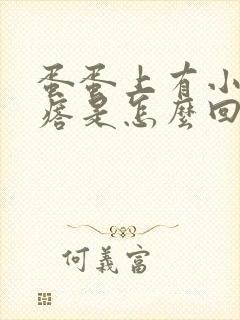 蛋蛋上有小
痞是怎麼回
何義富